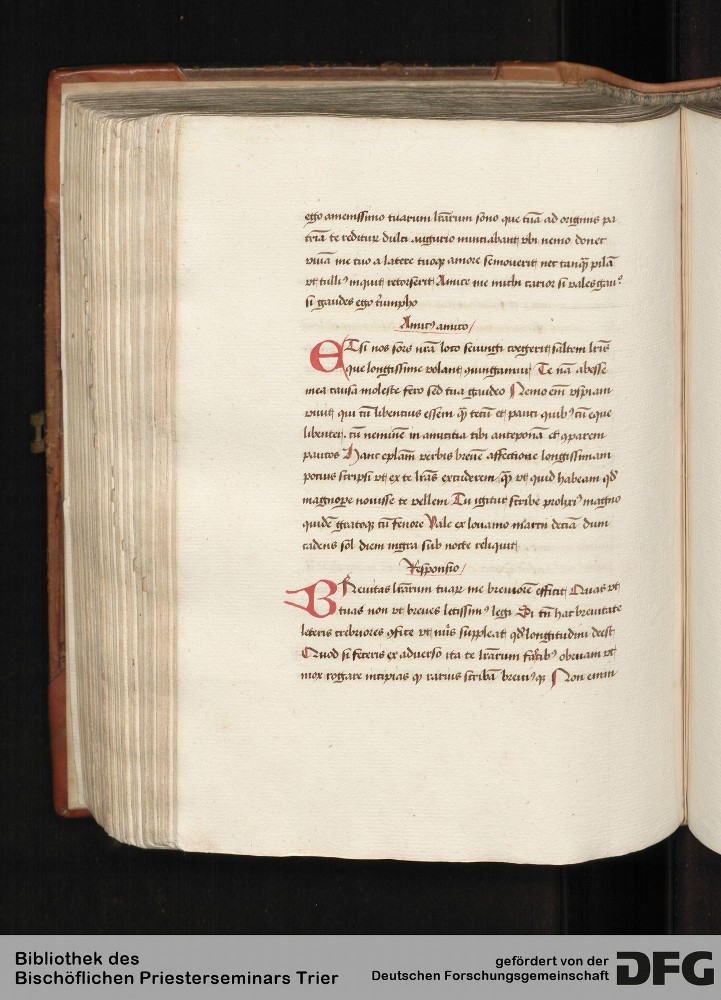 ego amenissimo tuarum lrarum sono que tua ad originis pa
tria te reditur dulci augurio nuntiabant vbi nemo donec
viua me tuo a latere tuoqз amore semouerit nec tanqз pila
vt tulli9 inquit retorserit Amice me michi carior si vales gau
si gaudes ego triumpho
Amic9 amico
ETsi nos sors nra loco seiungi coegerit saltem lris
que longissime volant 9iungamur Te na abesse
mea causa moleste fero sed tua gaudeo Nemo em vspiam
viuit qui cu libentius essem qз tecu et pauci quib9 cu eque
libenter cu nemine in amicitia tibi antepona et 9parem
paucos Hanc eplam verbis breue affectione longissimam
pocius scripsi vt ex te lras extuderem qз vt quid habeam qd
magnope nouisse te vellem Tu igitur scribe prolixi9 magno
quide gratoqз cu fenore Vale ex louanio martii decia dum
cadens sol diem nigra sub nocte reliquit
Responsio
BReuitas lrarum tuarз me breuiore efficit Quas vt
tuas non vt breues letissim9 legi Si tn hac breuitate
leteris crebriores 9fice vt nu9s suppleat qd longitudini deest
Quod si feceris ex aduerso ita te lrarum fascib9 obruam vt
mox rogare incipias qз rarius scriba breui9qз Non enim
Bibliothek des
Bischöflichen Priesterseminars Trier
gefördert von der
Deutschen Forschungsgemeinschaft
DFG